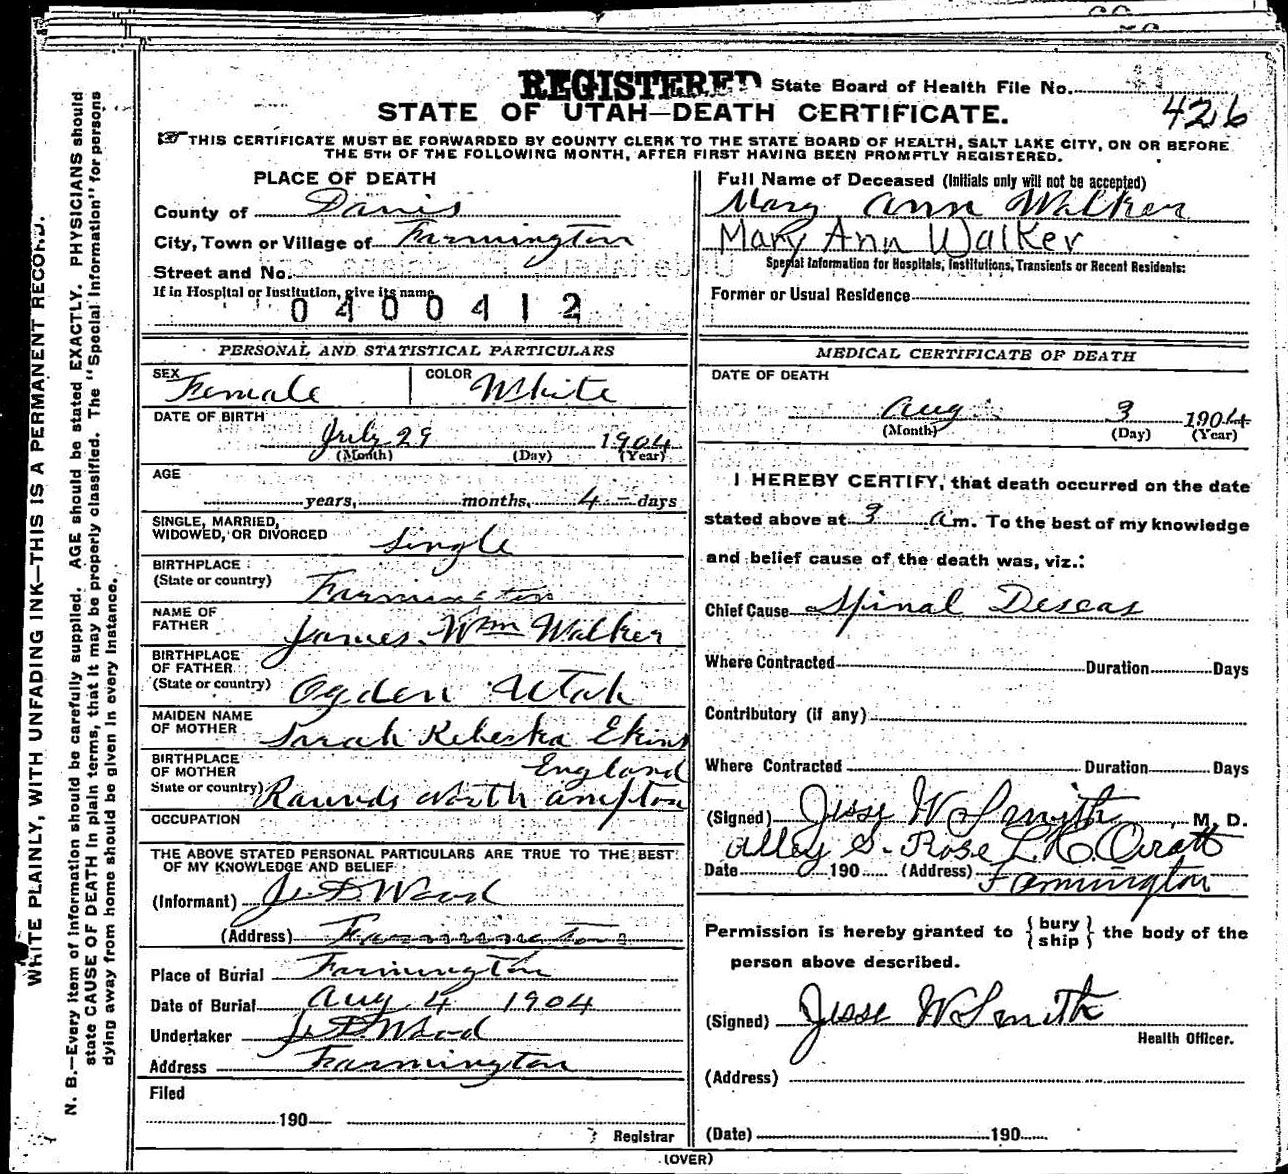 REGISTERED State Board of Health File No.
STATE OF UTAH—DEATH CERTIFICATE. 426
THIS CERTIFICATE MUST BE FORWARDED BY COUNTY CLERK TO THE STATE BOARD OF HEALTH, SALT LAKE CITY, ON OR BEFORE
THE 5TH OF THE FOLLOWING MONTH, AFTER FIRST HAVING BEEN PROMPTLY REGISTERED.
PLACE OF DEATH
County of Davis
City, Town or Village of Farmington
Street and No.
If in Hospital or Institution, give its name
0400412
Full Name of Deceased (Initials only will not be accepted)
Mary Ann Walker
Mary Ann Walker
Special Information for Hospitals, Institutions, Transients or Recent Residents:
Former or Usual Residence
PERSONAL AND STATISTICAL PARTICULARS
SEX Female COLOR White
DATE OF BIRTH
July 29 1904
(Month) (Day) (Year)
AGE
years, months, 4 – days
SINGLE, MARRIED,
WIDOWED, OR DIVORCED Single
BIRTHPLACE
(State or country) Farmington
NAME OF
FATHER James Wm Walker
BIRTHPLACE
OF FATHER
(State or country) Ogden Utah
MAIDEN NAME
OF MOTHER Sarah Kebeska Ekins
BIRTHPLACE
OF MOTHER England
State or country) Raunds North ampton
OCCUPATION
THE ABOVE STATED PERSONAL PARTICULARS ARE TRUE TO THE BEST
OF MY KNOWLEDGE AND BELIEF
(Informant) J. D. Wood
(Address) Farmington
Place of Burial Farmington
Date of Burial Aug 4 1904
Undertaker J. D. Wood
Address Farmington
Filed
190
Registrar
MEDICAL CERTIFICATE OF DEATH
DATE OF DEATH
Aug 3 1904
(Month) (Day) (Year)
I HEREBY CERTIFY, that death occurred on the date
stated above at 3 a.m. To the best of my knowledge
and belief cause of the death was, viz.:
Chief Cause Spinal Deseas
Where Contracted Duration Days
Contributory (if any)
Where Contracted Duration Days
(Signed) Jesse W Smith M. D.
Alley S. Rose L. H. Oviatt
Date 190 (Address) Farmington
Permission is hereby granted to {bury
ship} the body of the
person above described.
(Signed) Jesse W Smith
Health Officer.
(Address)
(Date) 190
(OVER)
WRITE PLAINLY, WITH UNFADING INK—THIS IS A PERMANENT RECORD.
N. B.—Every item of information should be carefully supplied. AGE should be stated EXACTLY. PHYSICIANS should
state CAUSE OF DEATH in plain terms, that it may be properly classified. The "Special Information" for persons
dying away from home should be given in every instance.